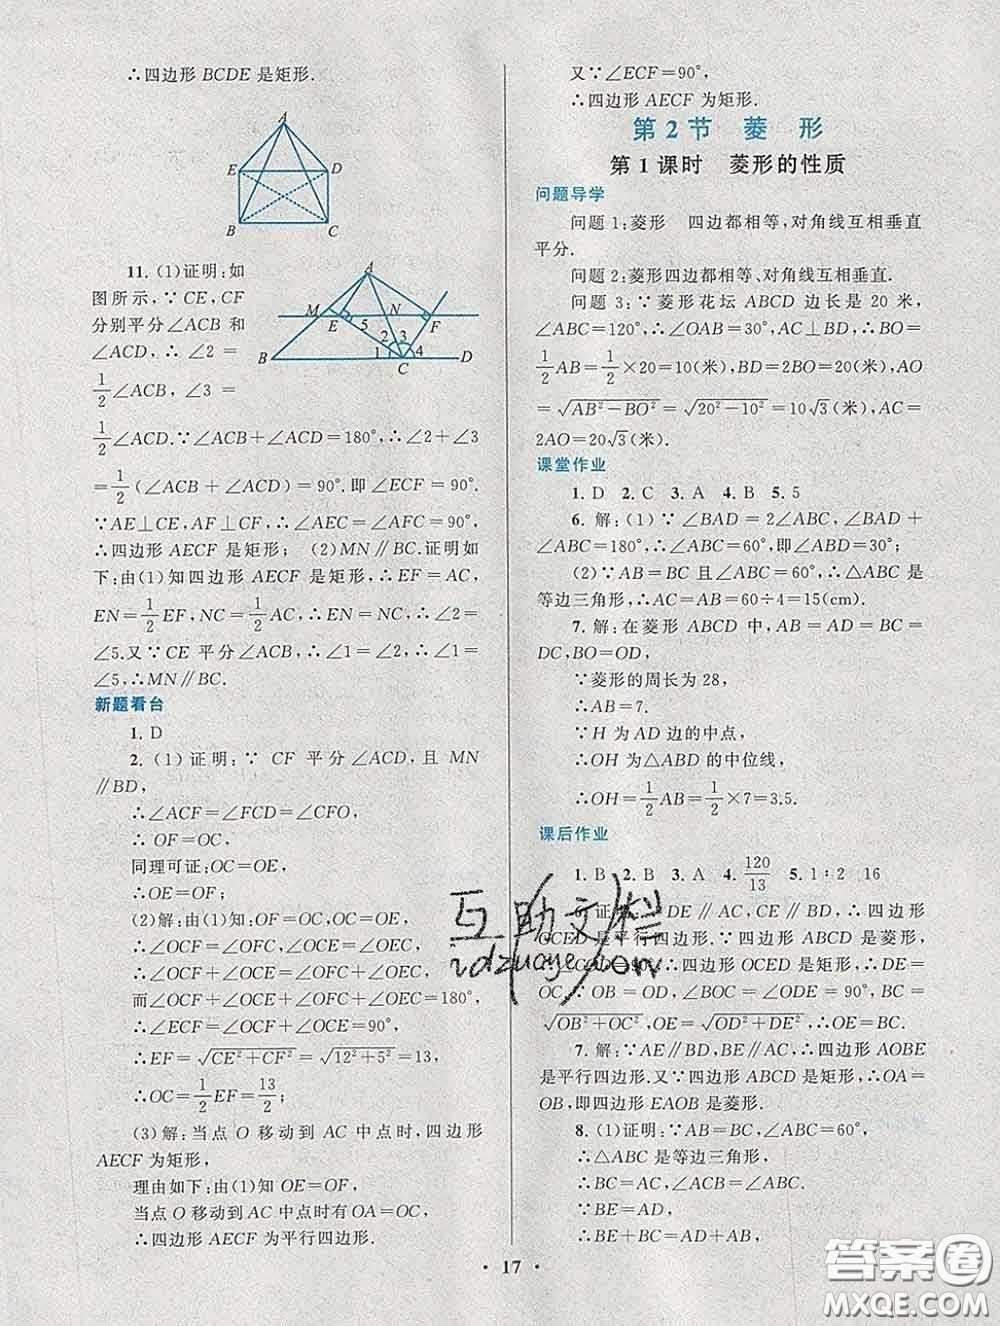 ∴四边形 BCDE 是矩形.
A
E D
B C
11. (1)证明:如
图所示,∵CE,CF
分别平分∠ACB 和
∠ACD,∴∠2=
1/2∠ACB,∠3=
A
M E 5 N F
2 3
B 1 4 D
C
1/2∠ACD.∵∠ACB+∠ACD=180°,∴∠2+∠3
=1/2(∠ACB+∠ACD)=90°.即∠ECF=90°.
∵AE⊥CE,AF⊥CF,∴∠AEC=∠AFC=90°,
∴四边形 AECF 是矩形; (2)MN∥BC.证明如
下:由(1)知四边形 AECF 是矩形,∴EF=AC,
EN=1/2EF,NC=1/2AC,∴EN=NC,∴∠2=
∠5.又∵CE 平分∠ACB,∴∠1=∠2,∴∠1=
∠5,∴MN∥BC.
新题看台
1. D
2. (1)证明:∵ CF 平分∠ACD,且 MN
∥BD,
∴∠ACF=∠FCD=∠CFO,
∴ OF=OC,
同理可证:OC=OE,
∴OE=OF;
(2)解:由(1)知:OF=OC,OC=OE,
∴∠OCF=∠OFC,∠OCE=∠OEC,
∴∠OCF+∠OCE=∠OFC+∠OEC,
而∠OCF+∠OCE+∠OFC+∠OEC=180°,
∴∠ECF=∠OCF+∠OCE=90°,
∴EF=√(CE²+CF²)=√(12²+5²)=13,
∴OC=1/2EF=13/2;
(3)解:当点 O 移动到 AC 中点时,四边形
AECF 为矩形,
理由如下:由(1)知 OE=OF,
当点 O 移动到 AC 中点时有 OA=OC,
∴四边形 AECF 为平行四边形.
又∵∠ECF=90°,
∴四边形 AECF 为矩形.
第 2 节 菱 形
第 1 课时 菱形的性质
问题导学
问题 1:菱形 四边都相等,对角线互相垂直
平分.
问题 2:菱形四边都相等、对角线互相垂直.
问题 3:∵菱形花坛 ABCD 边长是 20 米,
∠ABC=120°,∴∠OAB=30°,AC⊥BD,∴BO=
1/2AB=1/2×20=10(米),BD=2BO=20(米),AO
=√(AB²-BO²)=√(20²-10²)=10√3(米),AC=
2AO=20√3(米).
课堂作业
1. D 2. C 3. A 4. B 5. 5
6. 解:(1)∵∠BAD=2∠ABC,∠BAD+
∠ABC=180°,∴∠ABC=60°,即∠ABD=30°;
(2)∵AB=BC 且∠ABC=60°,∴△ABC 是
等边三角形,∴AC=AB=60÷4=15(cm).
7. 解:在菱形 ABCD 中,AB=AD=BC=
DC,BO=OD,
∵菱形的周长为 28,
∴AB=7.
∵H 为 AD 边的中点,
∴OH 为△ABD 的中位线,
∴OH=1/2AB=1/2×7=3.5.
课后作业
1. B 2. B 3. A 4. 120/13 5. 1∶2 16
证明:∵DE∥AC,CE∥BD,∴四边形
OCED 是平行四边形.
∴四边形 OCED 是矩形,∴DE=
OC.∵OB=OD,∠BOC=∠ODE=90°,∴BC=
√(OB²+OC²),OE=√(OD²+DE²),∴OE=BC.
7. 解:∵AE∥BD,BE∥AC,∴四边形 AOBE
是平行四边形.又∵四边形 ABCD 是矩形,∴OA=
OB,即四边形 EAOB 是菱形.
8. (1)证明:∵AB=BC,∠ABC=60°,
∴△ABC 是等边三角形,
∴BC=AC,∠ACB=∠ABC.
∵BE=AD,
∴BE+BC=AD+AB,
• 17 •
互助文栏
答案圈
MXQE.COM